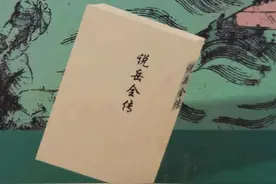 说岳全传